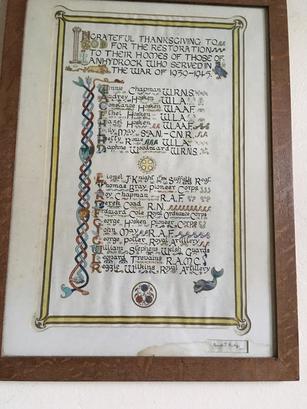 IN GRATEFUL THANKSGIVING TO
GOD FOR THE RESTORATION
TO THEIR HOMES OF THOSE OF
LANHYDROCK WHO SERVED IN
THE WAR OF 1939-1945.
Winnie Chapman W.R.N.S.
Audrey Hosken W.L.A.
Constance Hosken W.A.A.F.
Ethel Hosken W.L.A.
Hazel Hosken W.A.A.F.
Lily May S.A.N-C.N.R.
Duffy Rouse W.L.A.
Daphne Woodward W.R.N.S.
Lionel J. Knight Suffolk Regt.
Thomas Gray Pioneer Corps
Roy Chapman R.A.F.
Derek Coad R.N.
Edward Cole Royal Ordnance Corps
George Hosken Pioneer Corps
John May R.A.F.
George Potter Royal Artillery
William Stephens Welsh Guards
Leonard Trevains R.A.M.C.
Reggie Wilkins Royal Artillery